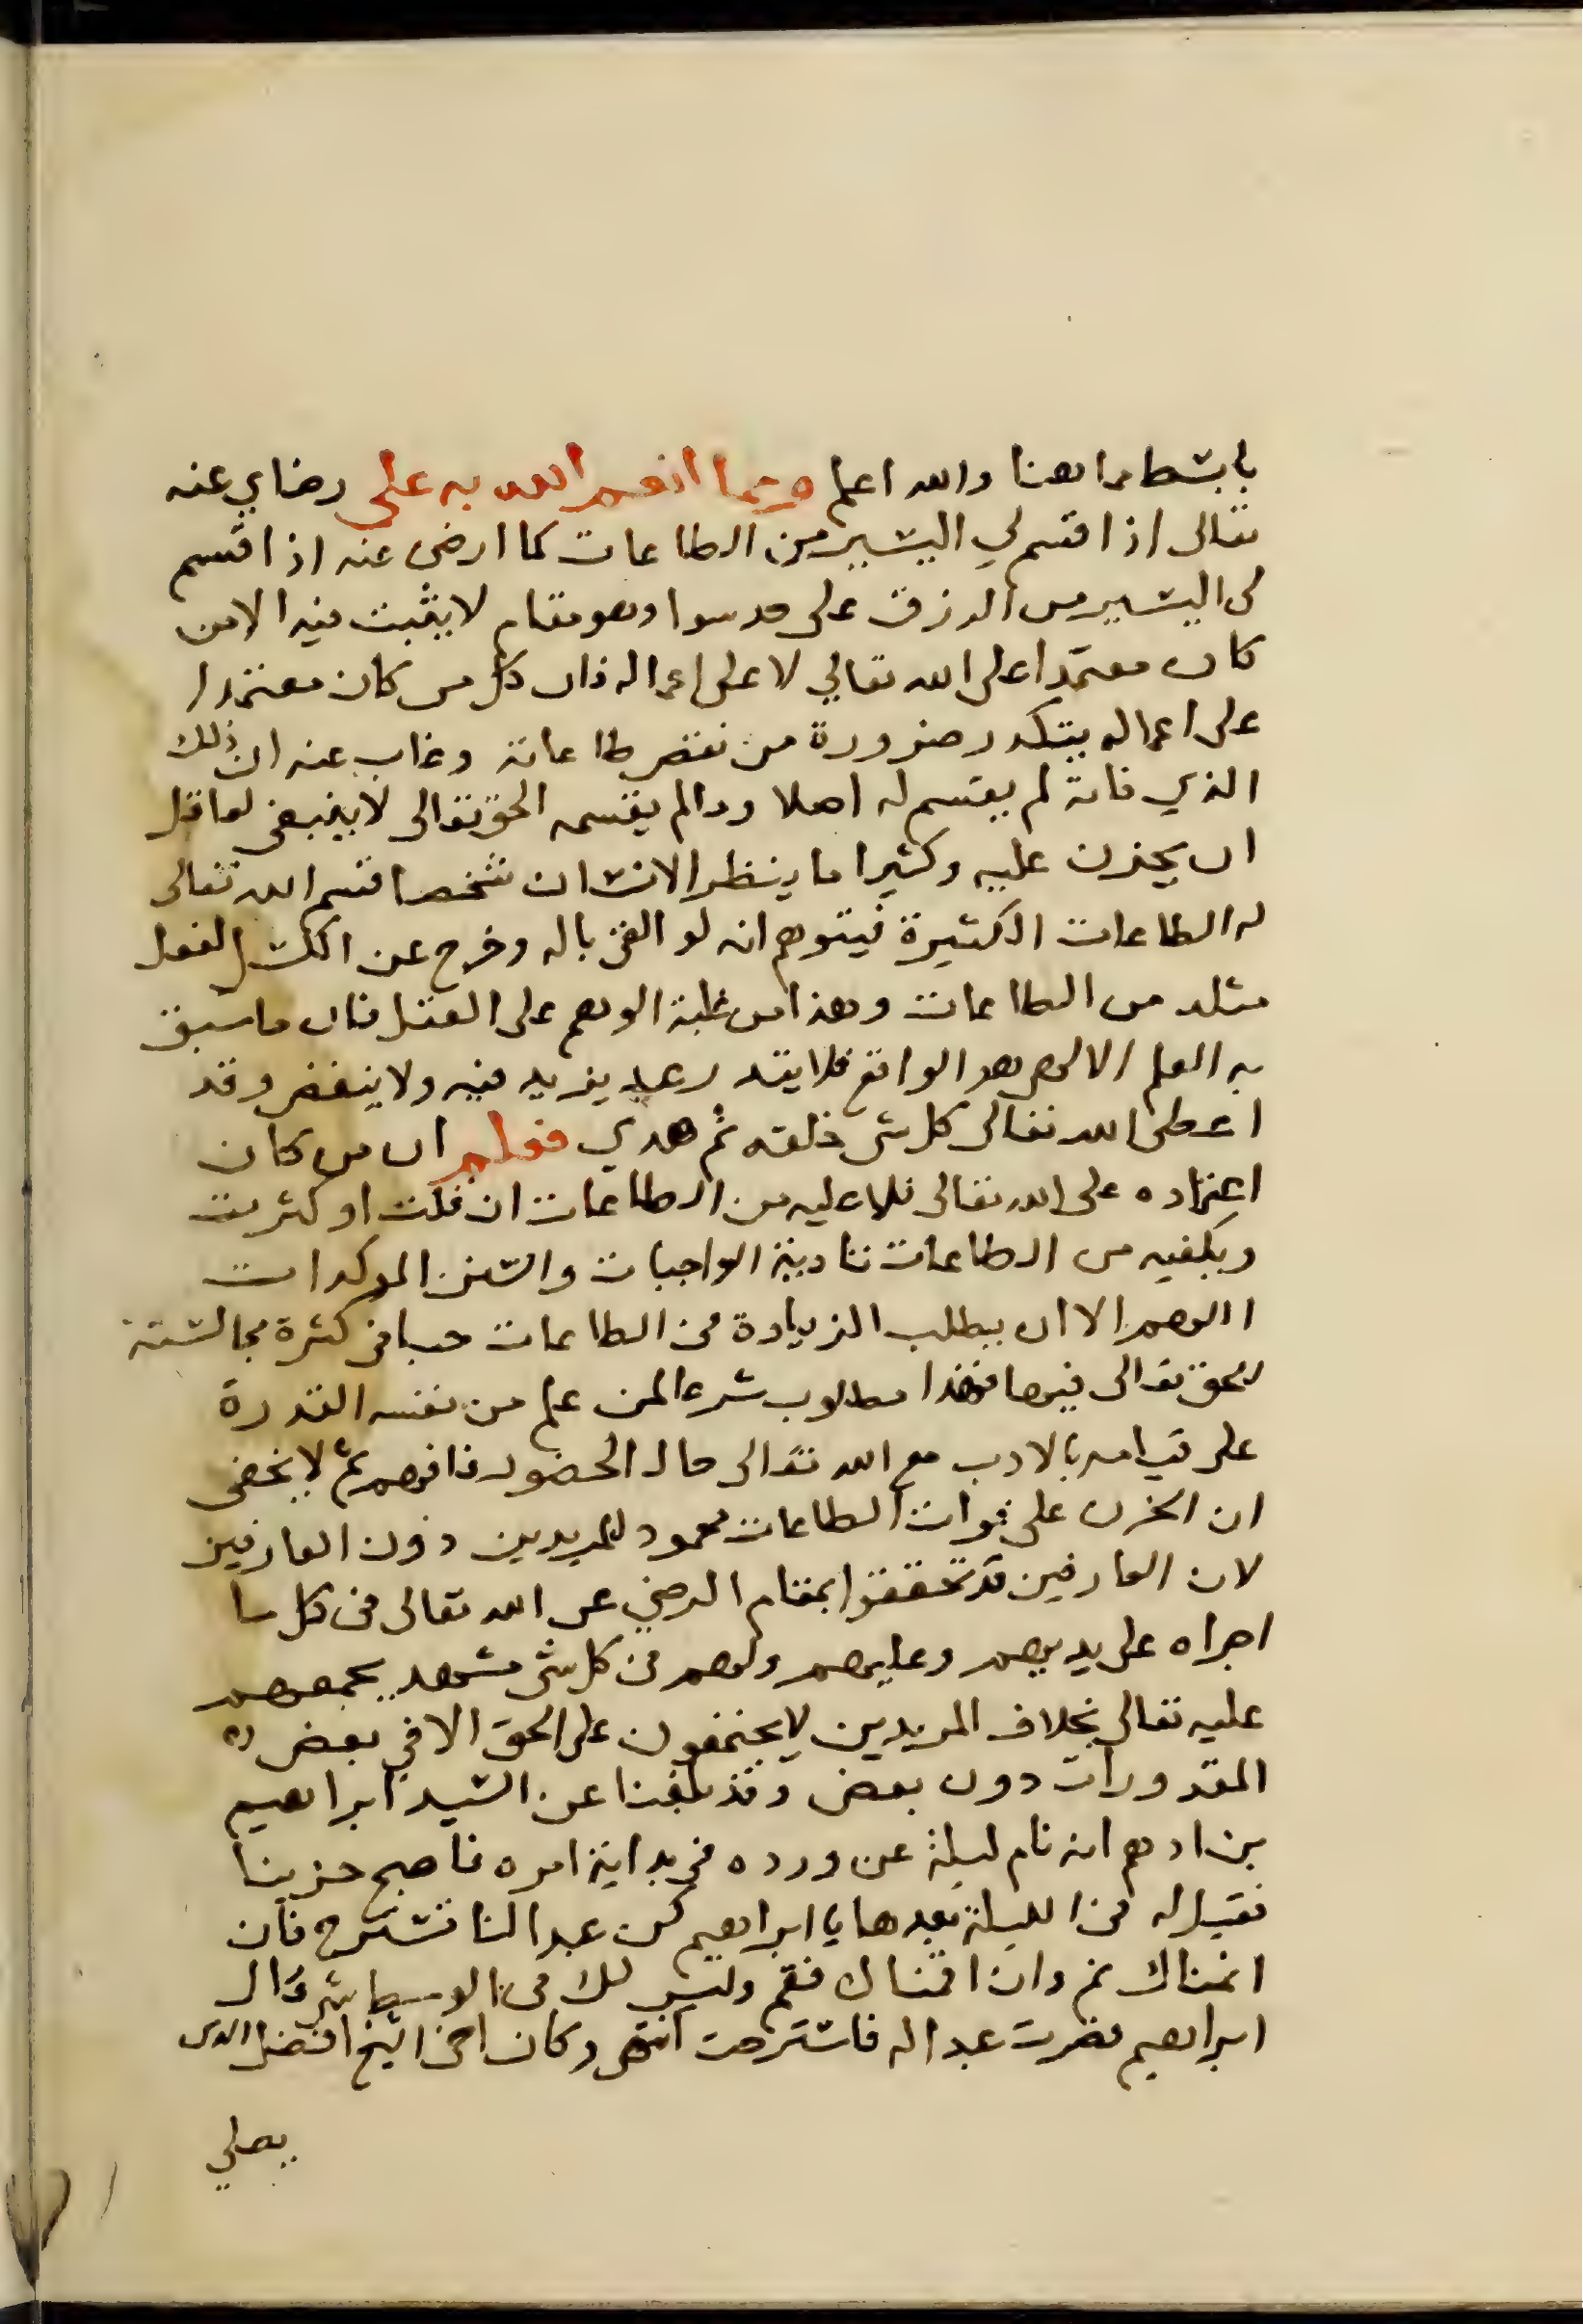 بابسط مما هنا والله اعلم ومما انعم الله به على رضاي عنه
تعالى اذا قسم لي اليسير من الطاعات كما ارضى عنه اذا قسم
لى اليسير من الرزق على حد سوا وهو مقام لا يثبت فيه الا من
كان معتمدا على الله تعالي لا على اعماله فان كل من كان معتمدا
على اعماله يتكدر ضرورة من نقص طاعاته وغاب عنه ان ذلك
الذي فاته لم يقسم له اصلا وما لم يقسمه الحق تعالى لا ينبغى لعاقل
ان يحزن عليه وكثيرا ما ينظر الانسان شخصا قسم الله تعالى
له الطاعات الكثيرة فيتوهم انه لو القى باله وخرج عن الكسل لفعل
مثله من الطاعات وهذا من غلبة الوهم على العقل فان ما سبق
به العلم الالهى هو الواقع فلا يقدر عبد يزيد فيه ولا ينقص وقد
اعطى الله تعالى كل شى خلقه ثم هدي فعلم ان من كان
اعتماده على الله تعالى فلا عليه من الطاعات ان قلت او كثرت
ويكفيه من الطاعات تادية الواجبات والسنن الموكدات
اللهم الا ان يطلب الزيادة من الطاعات حبا فى كثرة مجالسته
للحق تعالى فيها فهذا مطلوب شرعا لمن علم من نفسه القدرة
على قيامه بالادب مع الله تعالى حال الحضور فافهم ثم لا يخفى
ان الحزن على فوات الطاعات محمود للمريدين دون العارفين
لان العارفين قد تحققوا بمقام الرضي عن الله تعالى فى كل ما
اجراه على يديهم وعليهم ولهم فى كل شى مشهد يجمعهم
عليه تعالى بخلاف المريدين لا يجتمعون على الحق الا في بعض
المقدورات دون بعض وقد بلغنا عن السيد ابراهيم
بن ادهم انه نام ليلة عن ورده فى بداية امره فاصبح حزينا
فقيل له فى الليلة بعدها يا ابراهيم كن عبدا لنا تسترح فان
انمناك نم وان اقمناك فقم وليس لك فى الوسط شى قال
ابراهيم فصرت عبدا له فاسترحت انتهى وكان اخى الشيخ افضل الدين
يصلي